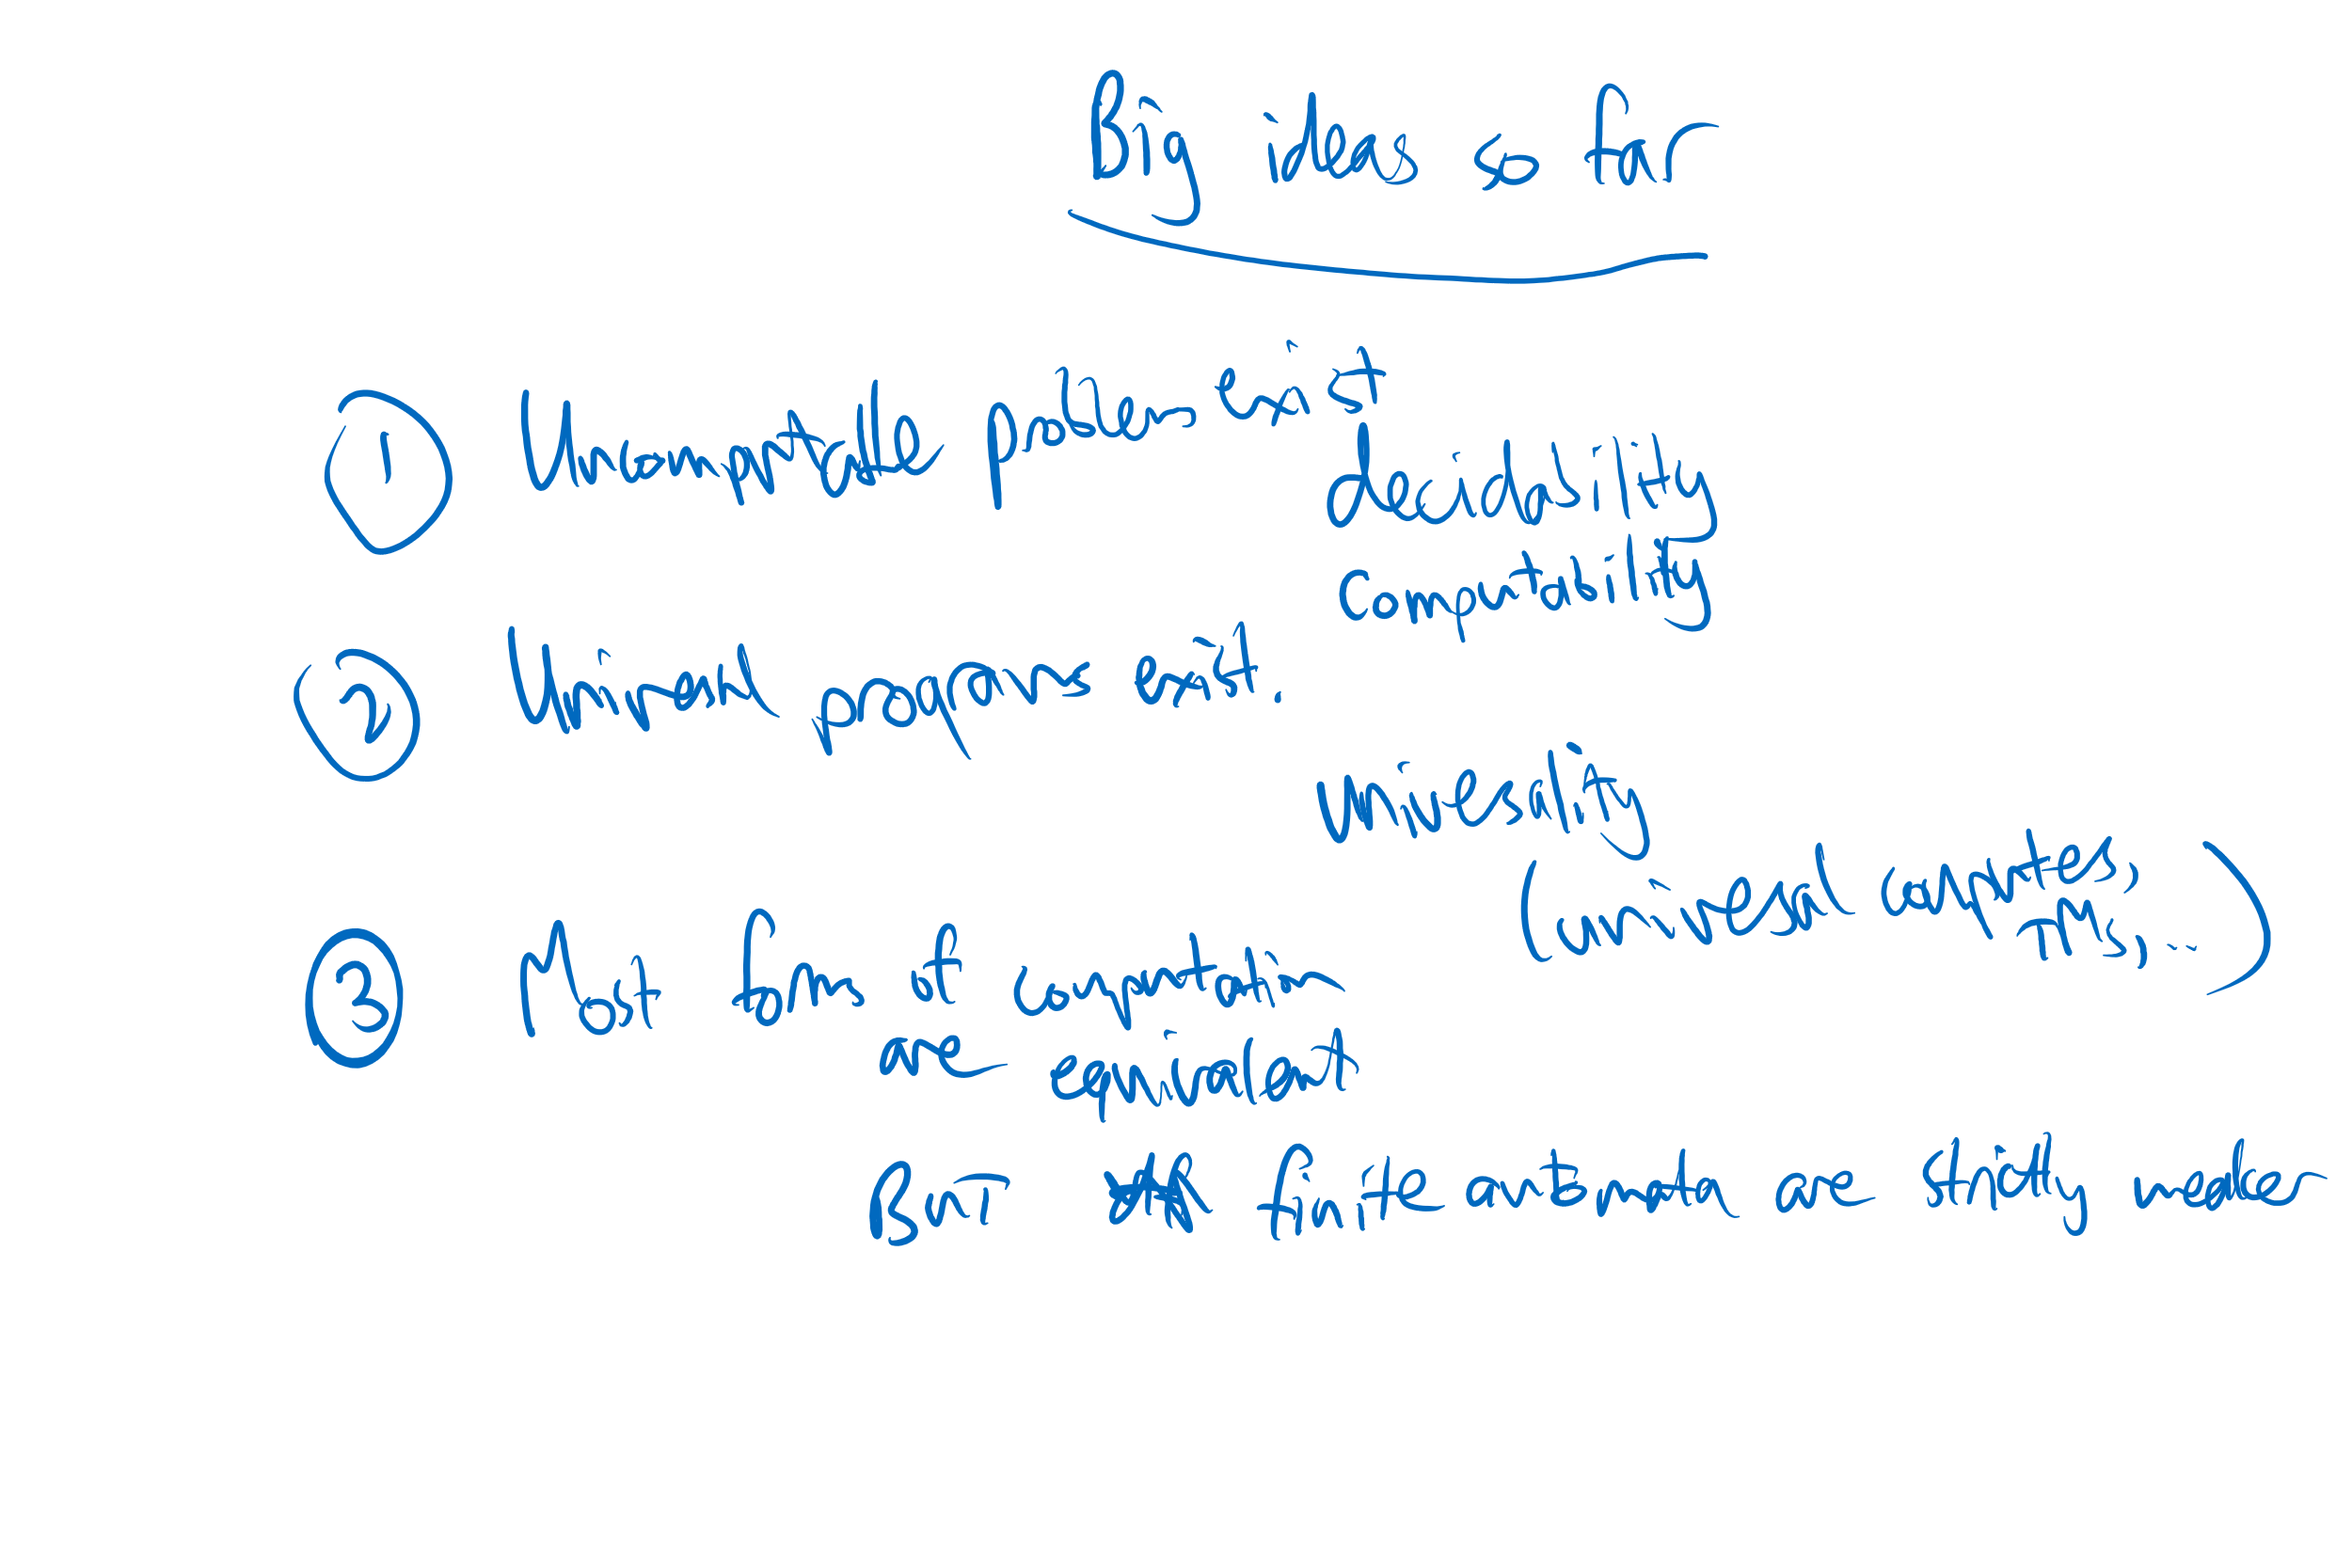 Big ideas so far
① Uncomputable problems exist
decidability
Computability
② Universal programs exist.
universality
(universal computers,
TMs, ...)
③ Most forms of computation
are equivalent
BUT finite automata are strictly weaker